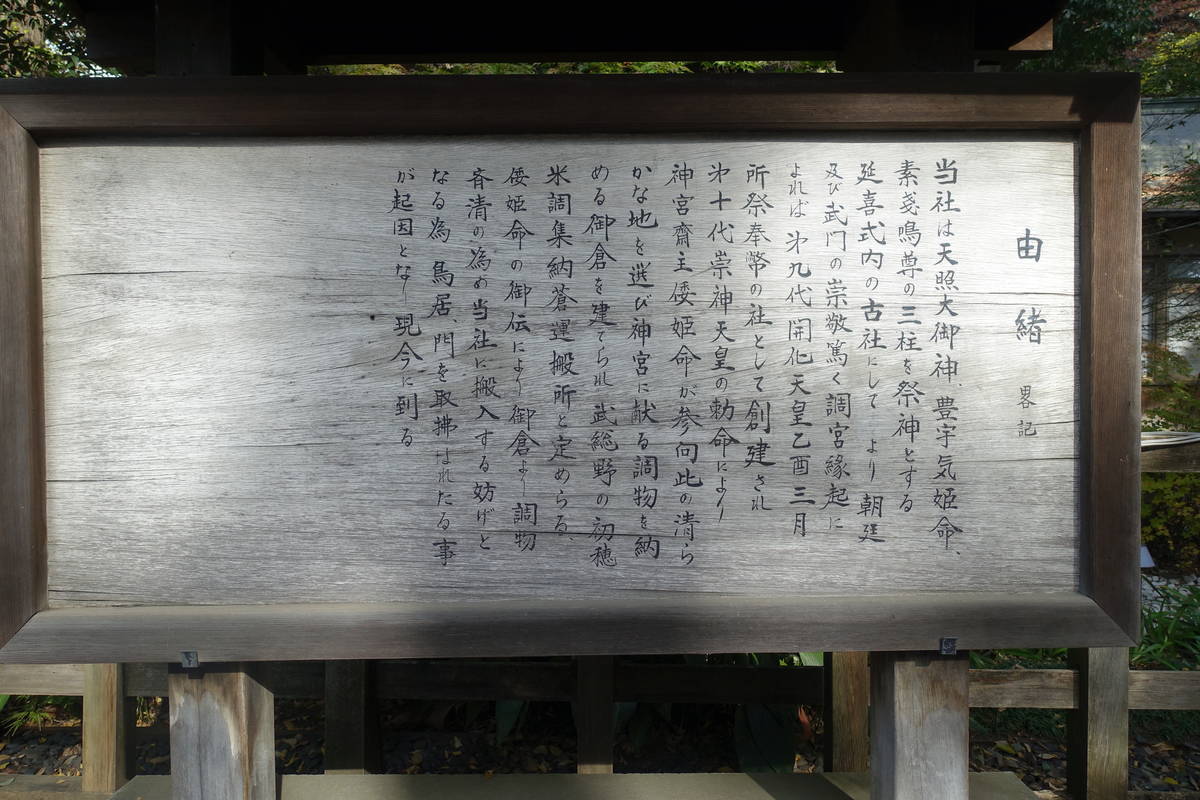 由緒 畧記
当社は天照大御神、豊宇気姫命、
素戔鳴尊の三柱を祭神とする
延喜式内の古社にして より朝廷
及び武門の崇敬篤く調宮縁起に
よれば 㐧九代開化天皇乙酉三月
所祭奉幣の社として創建され
㐧十代崇神天皇の勅命により
神宮齋主倭姫命が参向此の清ら
かな地を選び神宮に献る調物を納
める御倉を建てられ 武総野の初穂
米調集納蒼運搬所と定めらる、
倭姫命の御伝により御倉より調物
斉清の為め当社に搬入する妨げと
なる為 鳥居、門を取拂はれたる事
が起因となり現今に到る